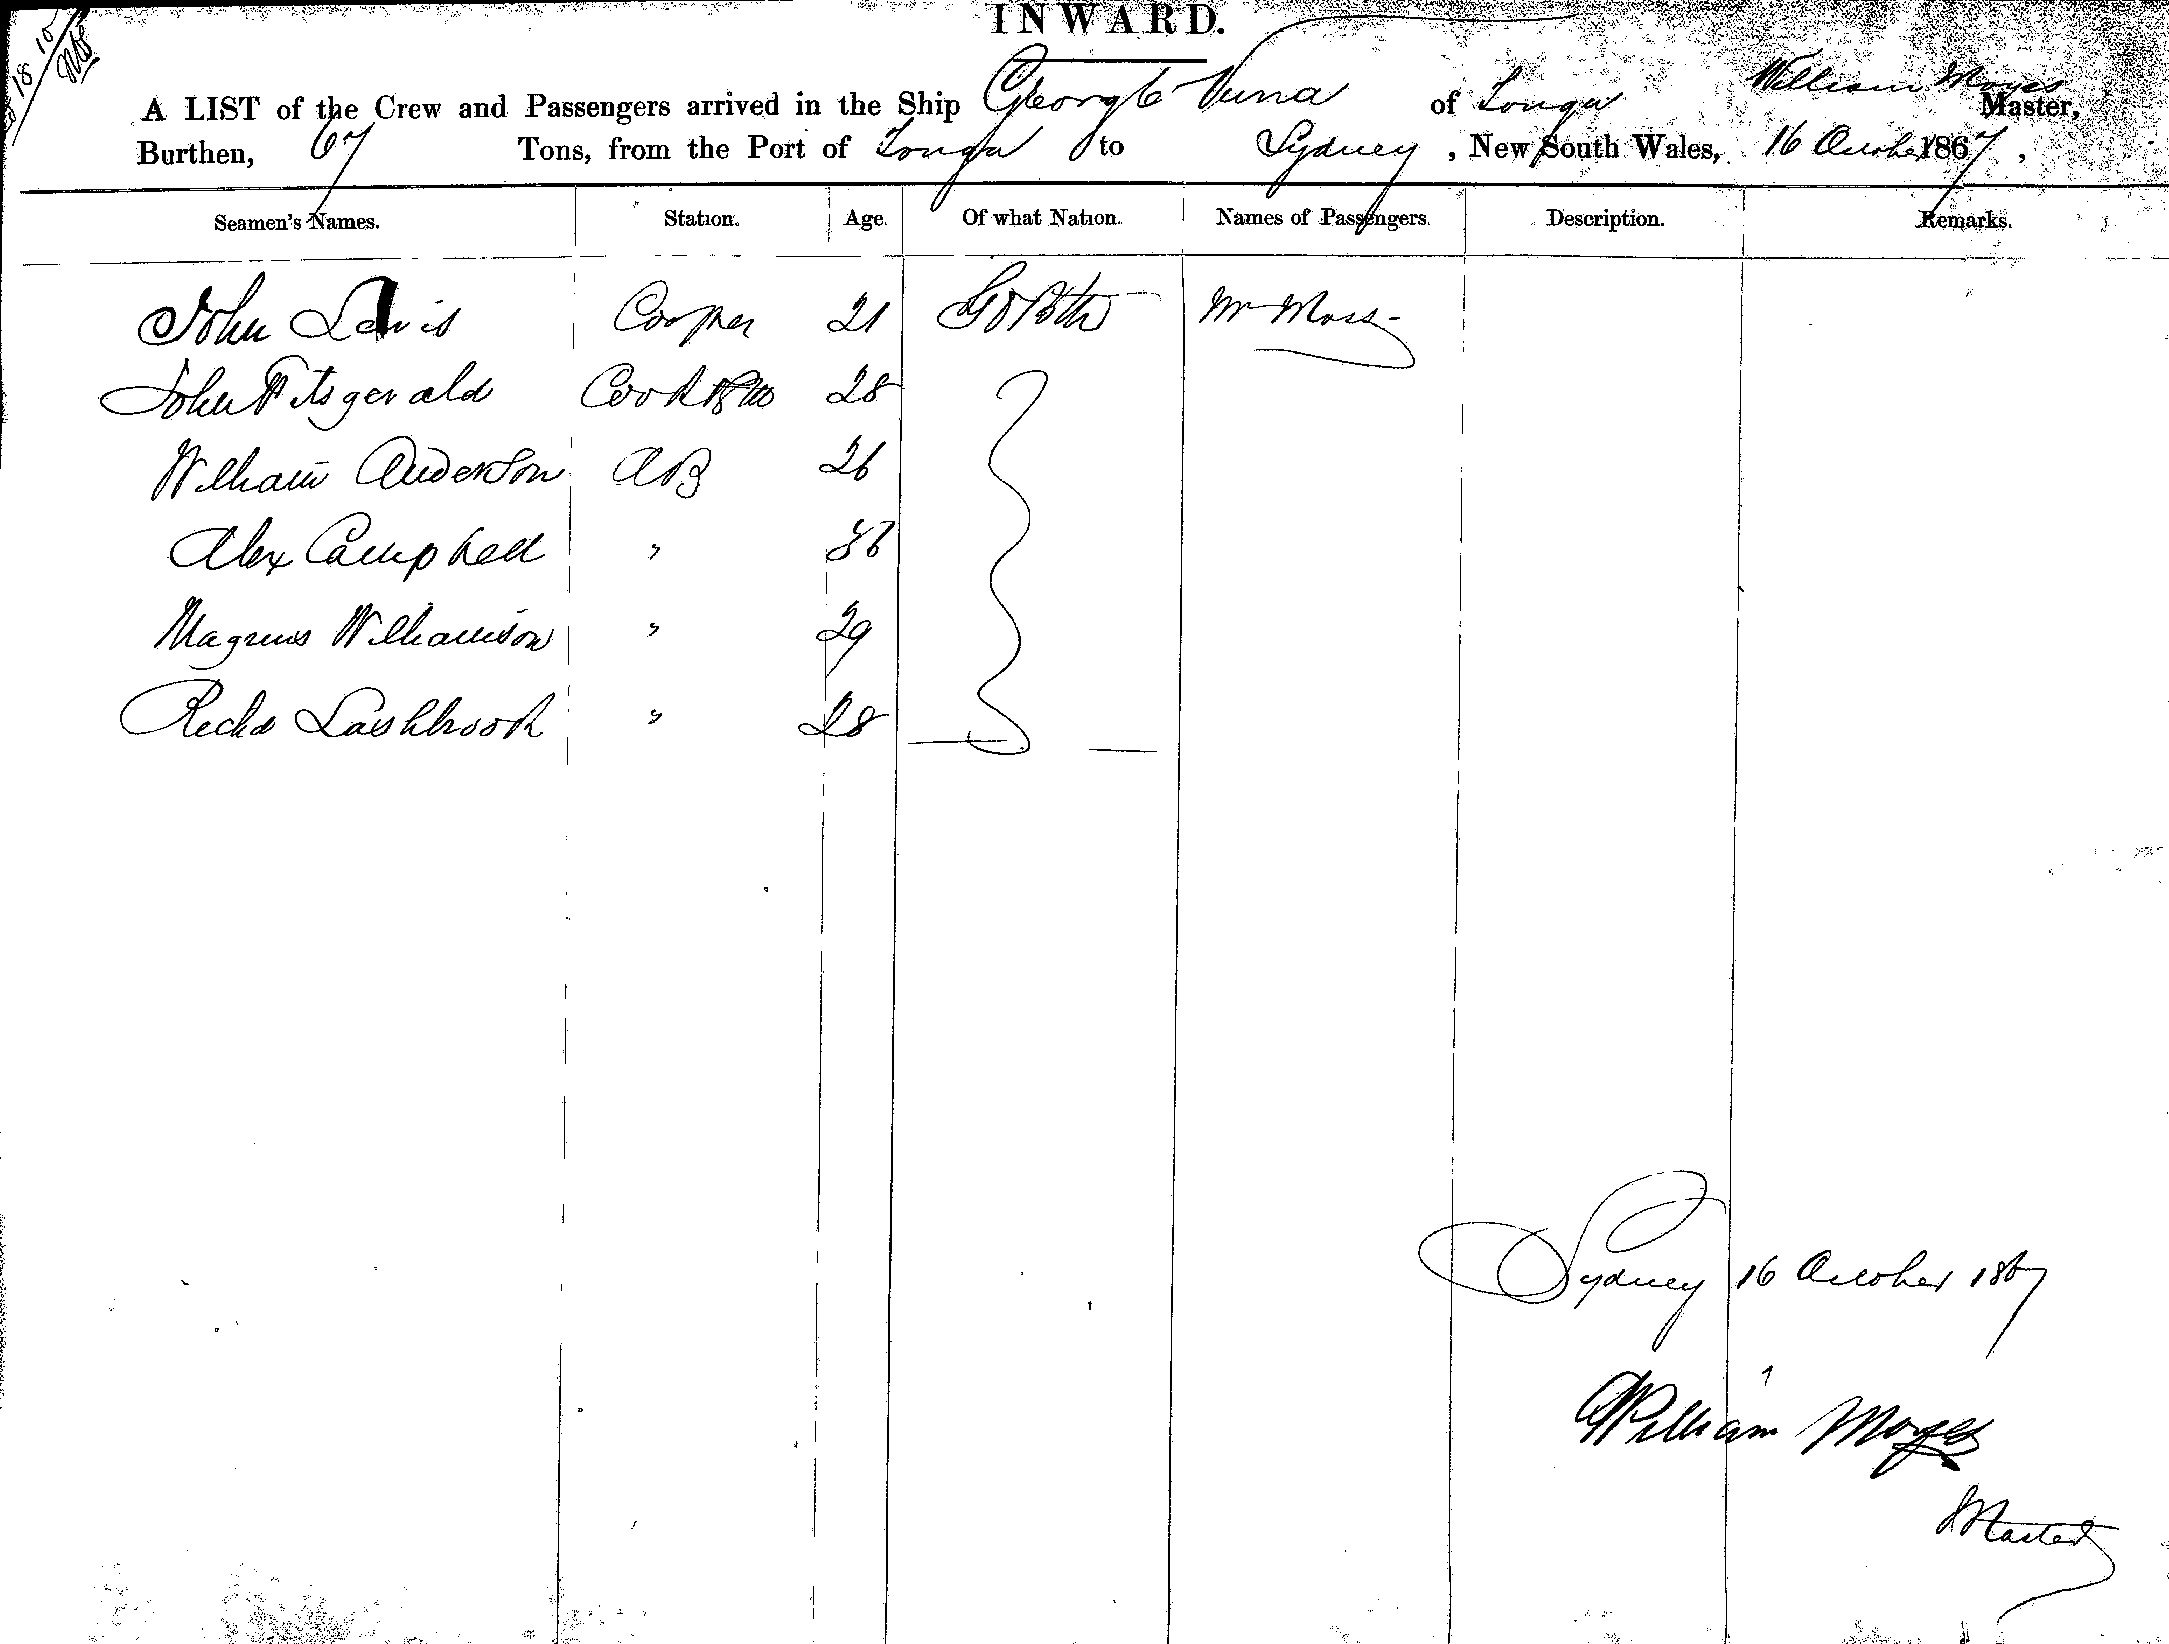 INWARD.
A LIST of the Crew and Passengers arrived in the Ship George Vuna of Tonga William Moyes Master,
Burthen, 67 Tons, from the Port of Tonga to Sydney, New South Wales, 16 October 1867,
Seamen's Names. Station. Age. Of what Nation. Names of Passengers. Description. Remarks.
John Lewis Cooper 21 G Britn Mr Moss
John Fitsgerald Cook 28
William Anderson AB 26
Alex Campbell " 36
Magnus Williamson " 29
Richd Lashbrook " 28
Sydney 16 October 1867
William Moyes
Master